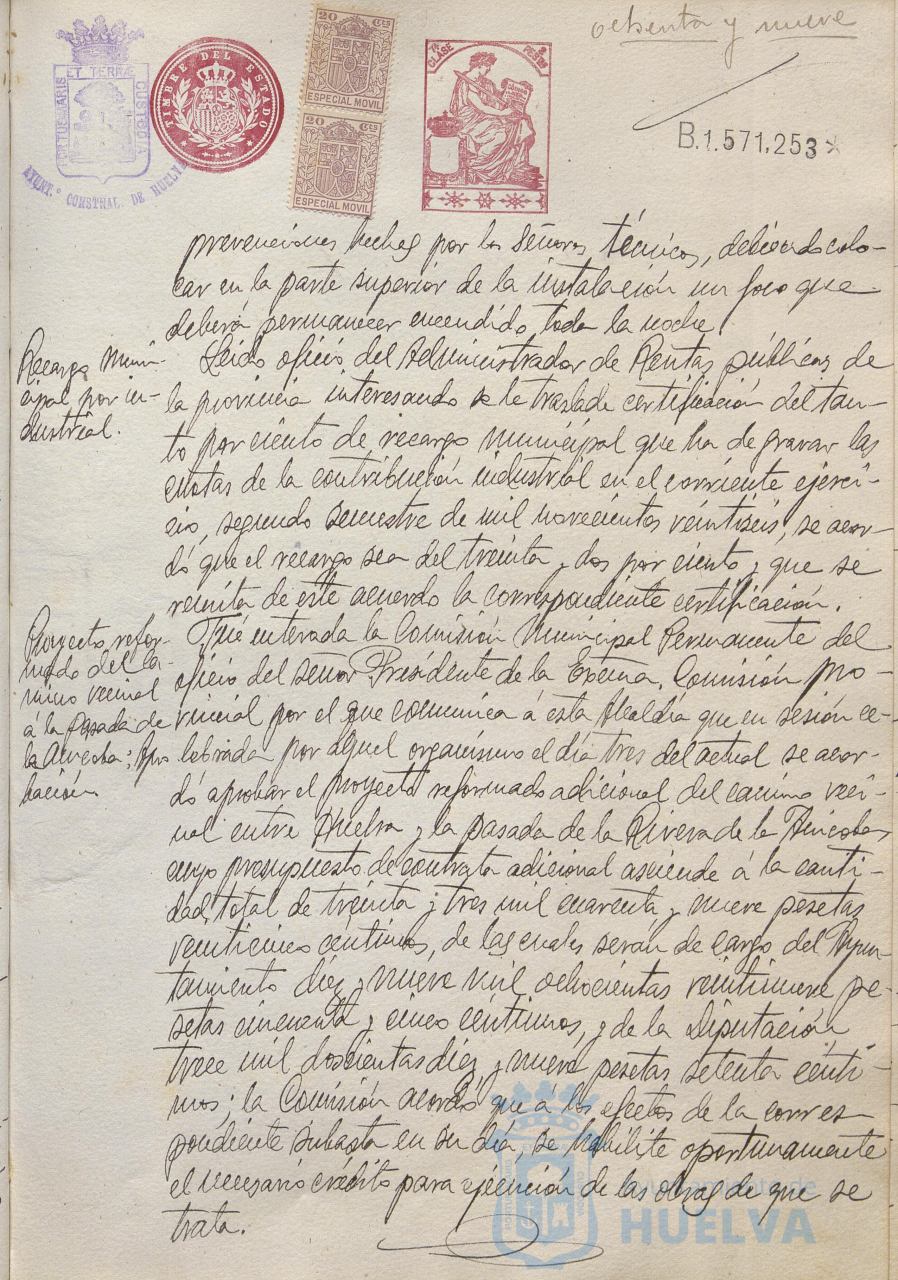 ochenta y nueve
PORTUS MARIS
ET TERRÆ
CUSTODIA
AYUNT.º CONSTNAL. DE HUELVA
TIMBRE DEL ESTADO
20 Cts
ESPECIAL MOVIL
20 Cts
ESPECIAL MOVIL
7ª CLASE
B.1.571.253
prevenciones hechas por los Señores técnicos, debiendo colo-
car en la parte superior de la instalación un foco que
deberá permanecer encendido, toda la noche.
Recargo Muni-
cipal por in-
dustrial.
Leido oficio del Administrador de Rentas públicas de
la provincia interesando se le traslade certificación del tan-
to por ciento de recargo municipal que ha de gravar las
cuotas de la contribución industrial en el corriente ejerci-
cio, segundo semestre de mil novecientos veintiseis, se acor-
dó que el recargo sea del treinta y dos por ciento y que se
remita de este acuerdo la correspondiente certificación.
Proyecto refor-
mado del ca-
mino vecinal
á la pasada de
la Anicoba; Apro
bación
Fué enterada la Comisión Municipal Permanente del
oficio del señor Presidente de la Excma. Comisión Pro-
vincial por el que comunica á esta Alcaldía que en sesión ce-
lebrada por aquel organismo el día tres del actual se acor-
dó aprobar el proyecto reformado adicional del camino veci-
nal entre Huelva y la pasada de la Rivera de la Anicoba,
cuyo presupuesto de contrata adicional asciende á la canti-
dad total de treinta y tres mil cuarenta y nueve pesetas
veinticinco céntimos, de las cuales serán de cargo del Ayun-
tamiento diez y nueve mil ochocientas veintinueve pe-
setas cincuenta y cinco céntimos, y de la Diputación
trece mil doscientas diez y nueve pesetas setenta cénti-
mos; la Comisión acordó que á los efectos de la corres-
pondiente subasta en su día, se habilite oportunamente
el necesario crédito para ejecución de las obras de que se
trata.
Ayuntamiento de
HUELVA